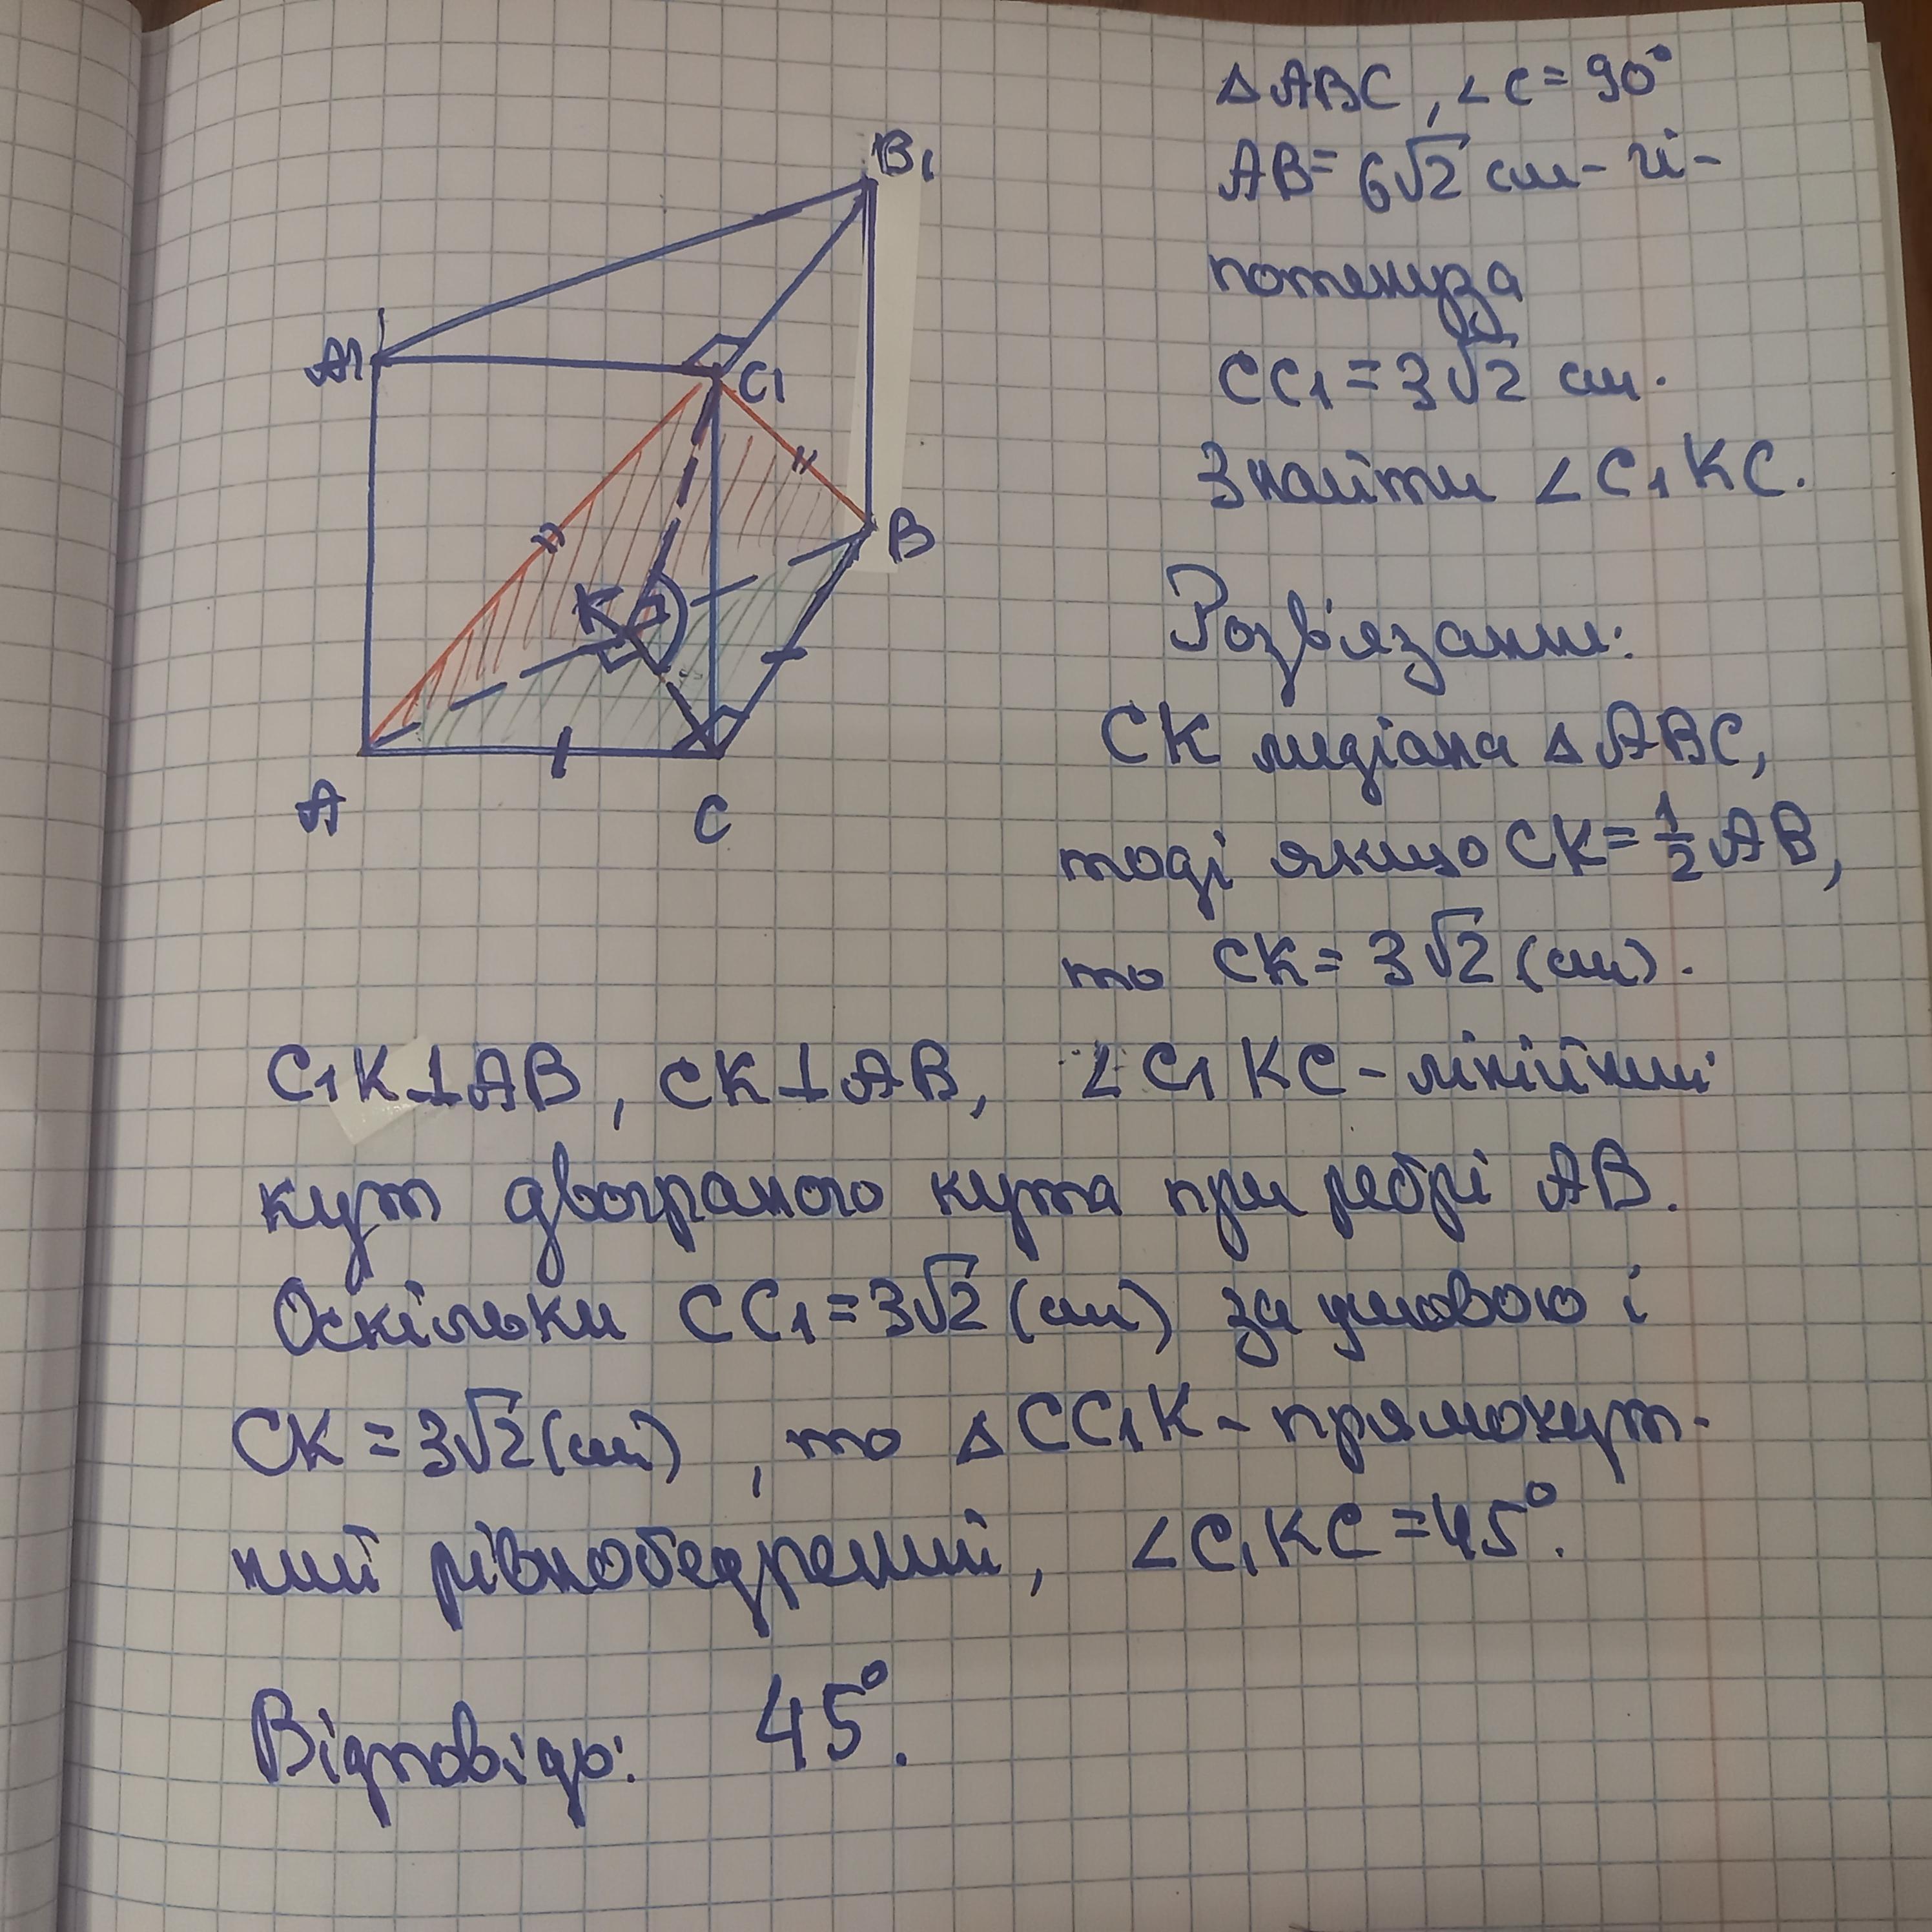 △ABC, ∠C=90°
AB=6√2 см - гі-
потенуза
CC1=3√2 см.
Знайти ∠C1KC.
Розв'язання:
CK медіана △ABC,
тоді якщо CK=1/2 AB,
то CK=3√2 (см).
C1K⊥AB, CK⊥AB, ∠C1KC - лінійний
кут двогранного кута при ребрі AB.
Оскільки CC1=3√2 (см) за умовою і
CK=3√2 (см), то △CC1K - прямокут-
ний рівнобедрений, ∠C1KC=45°.
Відповідь: 45°.
B1
A1
C1
B
K
A
C